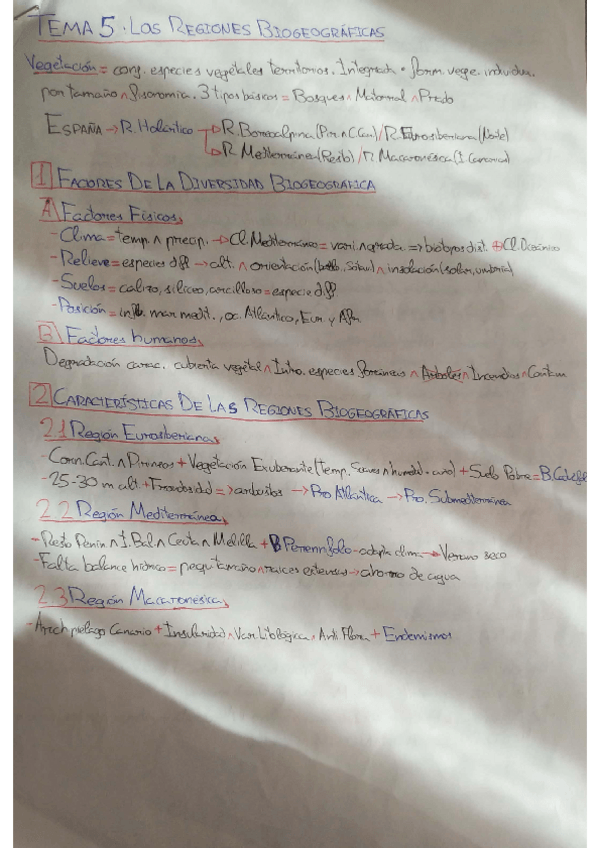 TEMA 5. LAS REGIONES BIOGEOGRÁFICAS
Vegetación = conj. especies vegetales territorios. Integrada • form. vege. individua.
por tamaño ∧ fisonomía. 3 tipos básicos = Bosques ∧ Matorral ∧ Prado
ESPAÑA → R. Holártico → R. Boroalpina (Pir. ∧ C. Can) / R. Eurosiberiana (Norte)
→ R. Mediterránea (Resto) / R. Macaronésica (I. Canarias)
1 FACTORES DE LA DIVERSIDAD BIOGEOGRÁFICA
A) Factores Físicos
- Clima = temp. ∧ precip. → Cl. Mediterráneo = vari. ∧ => biotipos dist. + Cl. Oceánico
- Relieve = especies diff → alt. ∧ orientación ∧ insolación (solana, umbría)
- Suelos = calizo, silíceo, arcilloso = especie diff
- Posición = infl. mar medit., oc. Atlántico, Eur. y Afr.
B) Factores humanos
Degradación carac. cubierta vegetal ∧ Intro. especies foráneas ∧ ∧ Incendios ∧ Contam
2 CARACTERÍSTICAS DE LAS REGIONES BIOGEOGRÁFICAS
2.1 Región Eurosiberiana
- Corn. Cant. ∧ Pirineos + Vegetación Exuberante (Temp. Suaves ∧ humedad • año) + Suelo Pobre = B. Caducifo
- 25-30 m alt. + Frondosidad => arbustos → Pro Atlántica → Pro. Submediterránea
2.2 Región Mediterránea
- Resto Penín ∧ I. Bal ∧ Ceuta ∧ Melilla + B Perennifolio - adapta clima → Verano seco
- Falta balance hídrico = pequ. tamaño ∧ raíces extensas → ahorro de agua
2.3 Región Macaronésica
- Archipielago Canario + Insularidad ∧ Var. Litológica ∧ Anti Flora + Endemismos